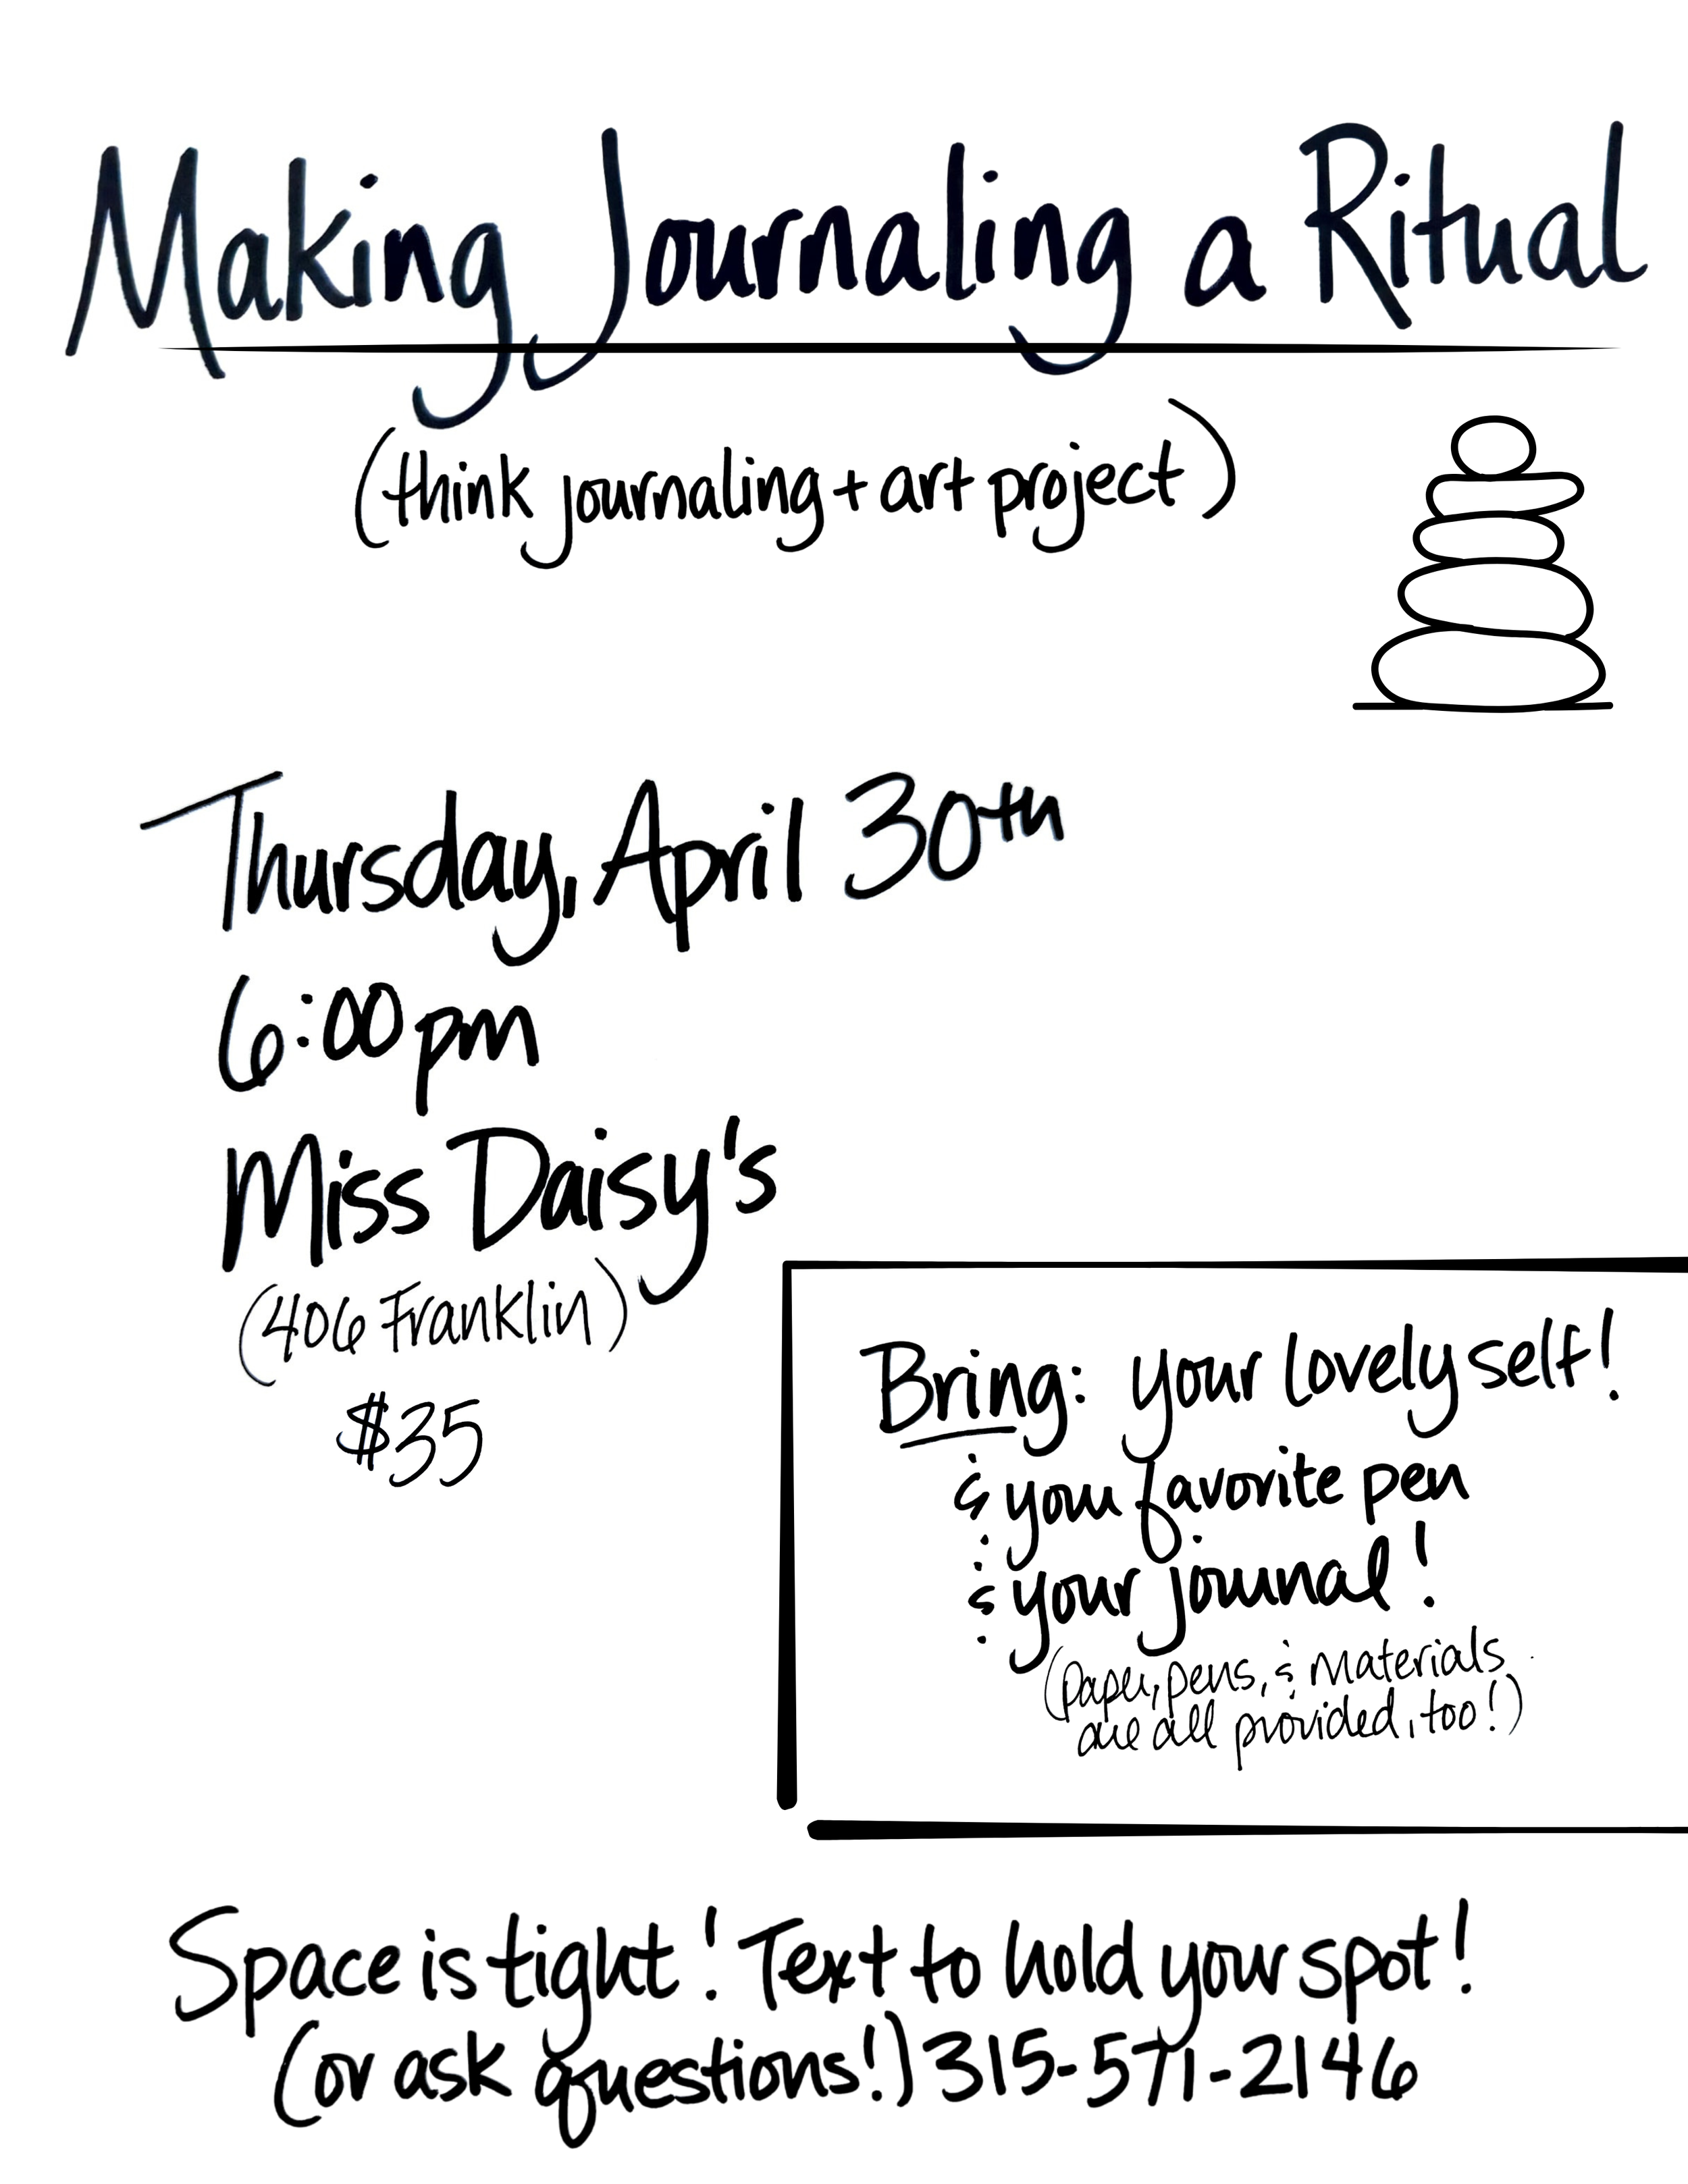 Making Journaling a Ritual
(think journaling + art project)
Thursday, April 30th
6:00pm
Miss Daisy's
(406 Franklin)
$35
Bring: your lovely self!
& your favorite pen
& your journal!
(paper, pens, & materials
are all provided, too!)
Space is tight! Text to hold your spot!
(or ask questions!) 315-571-2146